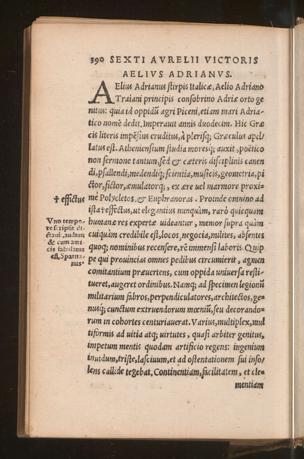 390 SEXTI AVRELII VICTORIS
AELIVS ADRIANVS.
AElius Adrianus stirpis Italicæ, Aelio Adriano
Traiani principis consobrino Adriæ orto ge
nitus: quia id oppidū agri Piceni, etiam mari Adria-
tico nomē dedit. Imperauit annis duodecim. Hic Græ
cis literis impēsius eruditus, à plerisq; Græculus appel
latus est. Atheniensium studia moresq; auxit, poëtico
non sermone tantum, sed & cæteris disciplinis canen
di, psallendi, medendiq; scientia, musicis, geometria, pi
ctor, fictor, æmulatorq;, ex ære uel marmore proxi-
mè Polycletos, & Euphranoras. Proinde omnino ad
ista refectus, ut elegantius nunquàm, rarò quicquam
humana res experta uideantur, memor supra quàm
cuiquàm credibile est, locos, negocia, milites, absentes
quoq; nominibus recensere, rē immensi laboris. Quip
pe qui prouincias omnes pedibus circumierit, agmen
comitantium præuertens, cum oppida uniuersa resti-
tueret, augeret ordinibus. Namq; ad specimen legionū
militarium fibros, perpendiculatores, architectos, ge-
nusq; cunctum extruendorum mœniū, seu decorando-
rum in cohortes centuriauerat. Varius, multiplex, mul
tiformis ad uitia atq; uirtutes, quasi arbiter genitus,
impetum mentis quodam artificio regens: ingenium
inuidum, triste, lasciuum, et ad ostentationem sui inso/
lens callidè tegebat, Continentiam, facilitatem, et cle-
mentiam
✝ effictus
Vno tempo-
re scripsit, di
ctauit, audiuit
& cum ami-
cis fabulatus
est, Spartia-
nus